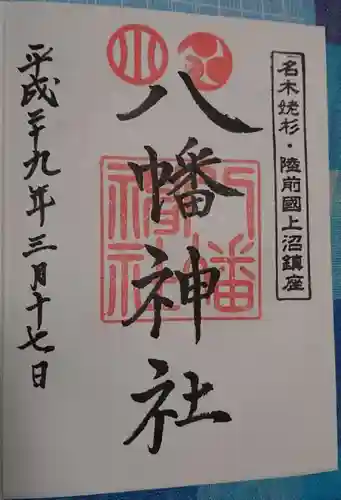 名木姥杉・陸前國上沼鎮座
八幡神社
八幡
神社
平成二十九年三月十七日